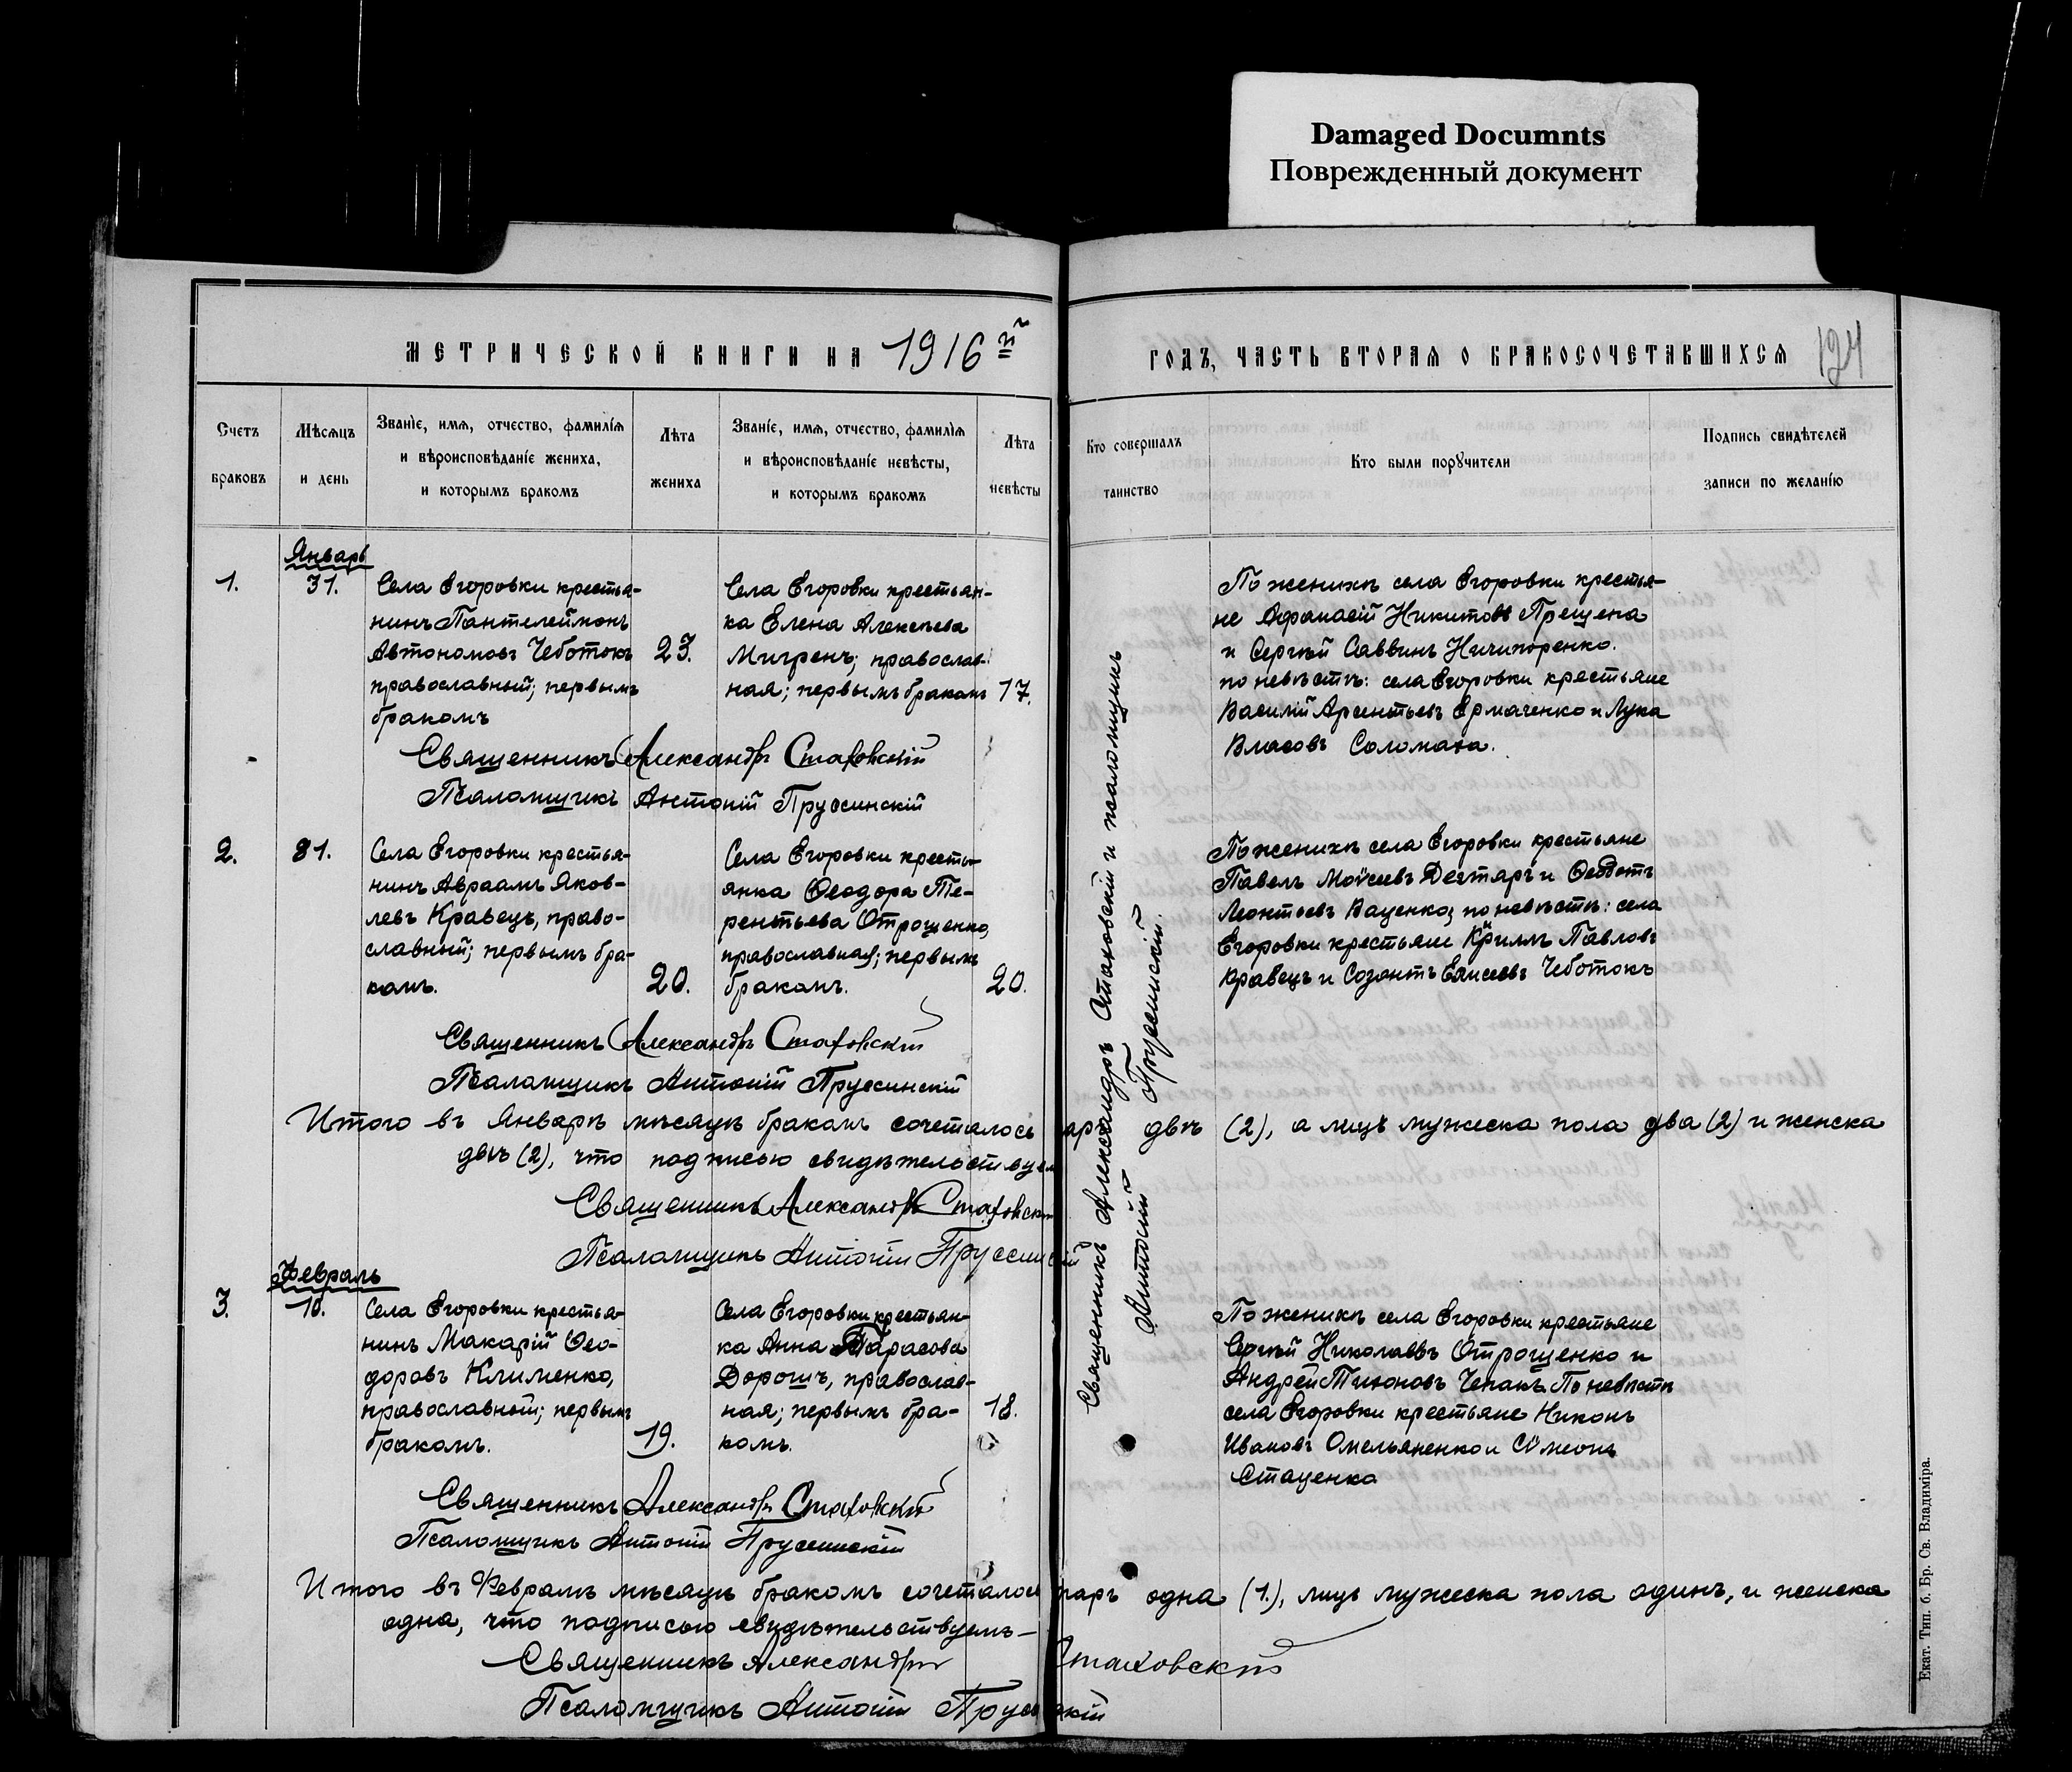 Damaged Documnts
Поврежденный документ
МЕТРИЧЕСКОЙ КНИГИ НА 1916й
ГОДЪ, ЧАСТЬ ВТОРАЯ О БРАКОСОЧЕТАВШИХСЯ 124
Счетъ
браковъ
Мѣсяцъ
и день
Званіе, имя, отчество, фамилія
и вѣроисповѣданіе жениха,
и которымъ бракомъ
Лѣта
жениха
Званіе, имя, отчество, фамилія
и вѣроисповѣданіе невѣсты,
и которымъ бракомъ
Лѣта
невѣсты
Кто совершалъ
таинство
Кто были поручители
Подпись свидѣтелей
записи по желанію
Январь
1.
31.
Села Егоровки крестья-
нинъ Пантелеймонъ
Автономовъ Чеботокъ
православный; первымъ
бракомъ
23.
Села Егоровки крестьян-
ка Елена Алексѣева
Мигренъ; православ-
ная; первымъ бракомъ
17.
По женихѣ села Егоровки крестья-
не Афанасій Никитовъ Прещена
и Сергѣй Саввинъ Ничипоренко.
по невѣстѣ: села Егоровки крестьяне
Василій Арсентьевъ Ермаченко и Лука
Власовъ Соломаха.
Священникъ Александръ Стаховскій
Псаломщикъ Антоній Пруссинскій
2.
31.
Села Егоровки крестья-
нинъ Авраамъ Яков-
левъ Кравецъ, право-
славный; первымъ бра-
комъ.
20.
Села Егоровки кресть-
янка Ѳеодора Те-
рентьева Отрощенко,
православная; первымъ
бракомъ.
20.
По женихѣ села Егоровки крестьяне
Павелъ Моѵсеевъ Дегтярь и Ѳедотъ
Леонтьевъ Ваценко; по невѣстѣ: села
Егоровки крестьяне Кѵриллъ Павловъ
Кравецъ и Созонтъ Елисеевъ Чеботокъ
Священникъ Александръ Стаховскій
Псаломщикъ Антоній Пруссинскій
Священникъ Александръ Стаховскій и псаломщикъ
Антоній Пруссинскій.
Итого въ Январѣ мѣсяцѣ бракомъ сочеталось паръ двѣ (2), а лицъ мужеска пола два (2) и женска
двѣ (2), что подписью свидѣтельствуемъ
Священникъ Александръ Стаховскій
Псаломщикъ Антоній Пруссинскій
Февраль
3.
10.
Села Егоровки крестья-
нинъ Макарій Ѳео-
доровъ Клименко,
православный; первымъ
бракомъ.
19.
Села Егоровки крестьян-
ка Анна Тарасова
Дорошъ, православ-
ная; первымъ бра-
комъ.
18.
По женихѣ села Егоровки крестьяне
Сергѣй Николаевъ Отрощенко и
Андрей Тихоновъ Чепакъ. По невѣстѣ
села Егоровки крестьяне Никонъ
Ивановъ Омельяненко и Сѵмеонъ
Стаценко
Священникъ Александръ Стаховскій
Псаломщикъ Антоній Пруссинскій
Итого въ Февралѣ мѣсяцѣ бракомъ сочеталось паръ одна (1.), лицъ мужеска пола одинъ, и женска
одна, что подписью свидѣтельствуемъ—
Священникъ Александръ Стаховскій
Псаломщикъ Антоній Пруссинскій
Екат. Тип. б. Бр. Св. Владиміра.